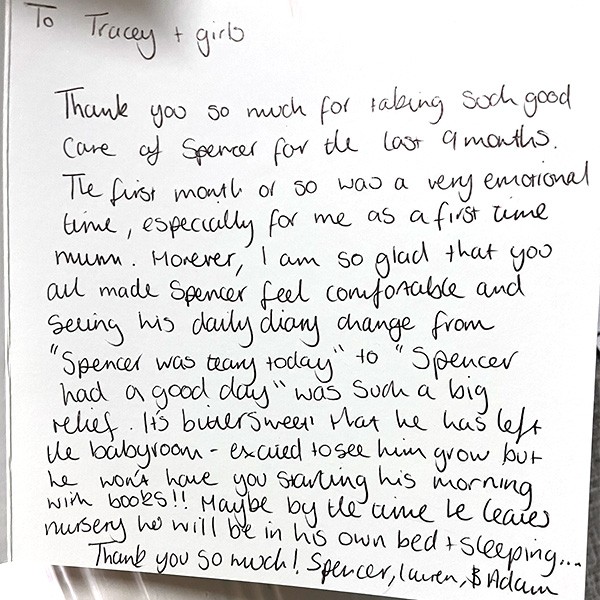 To Tracey + girls
Thank you so much for taking such good
care of Spencer for the last 9 months.
The first month or so was a very emotional
time, especially for me as a first time
mum. However, I am so glad that you
all made Spencer feel comfortable and
seeing his daily diary change from
"Spencer was teary today" to "Spencer
had a good day" was such a big
relief. It's bittersweet that he has left
the babyroom - excited to see him grow but
he won't have you starting his morning
with books!! Maybe by the time he leaves
nursery he will be in his own bed + sleeping...
Thank you so much! Spencer, Lauren, & Adam